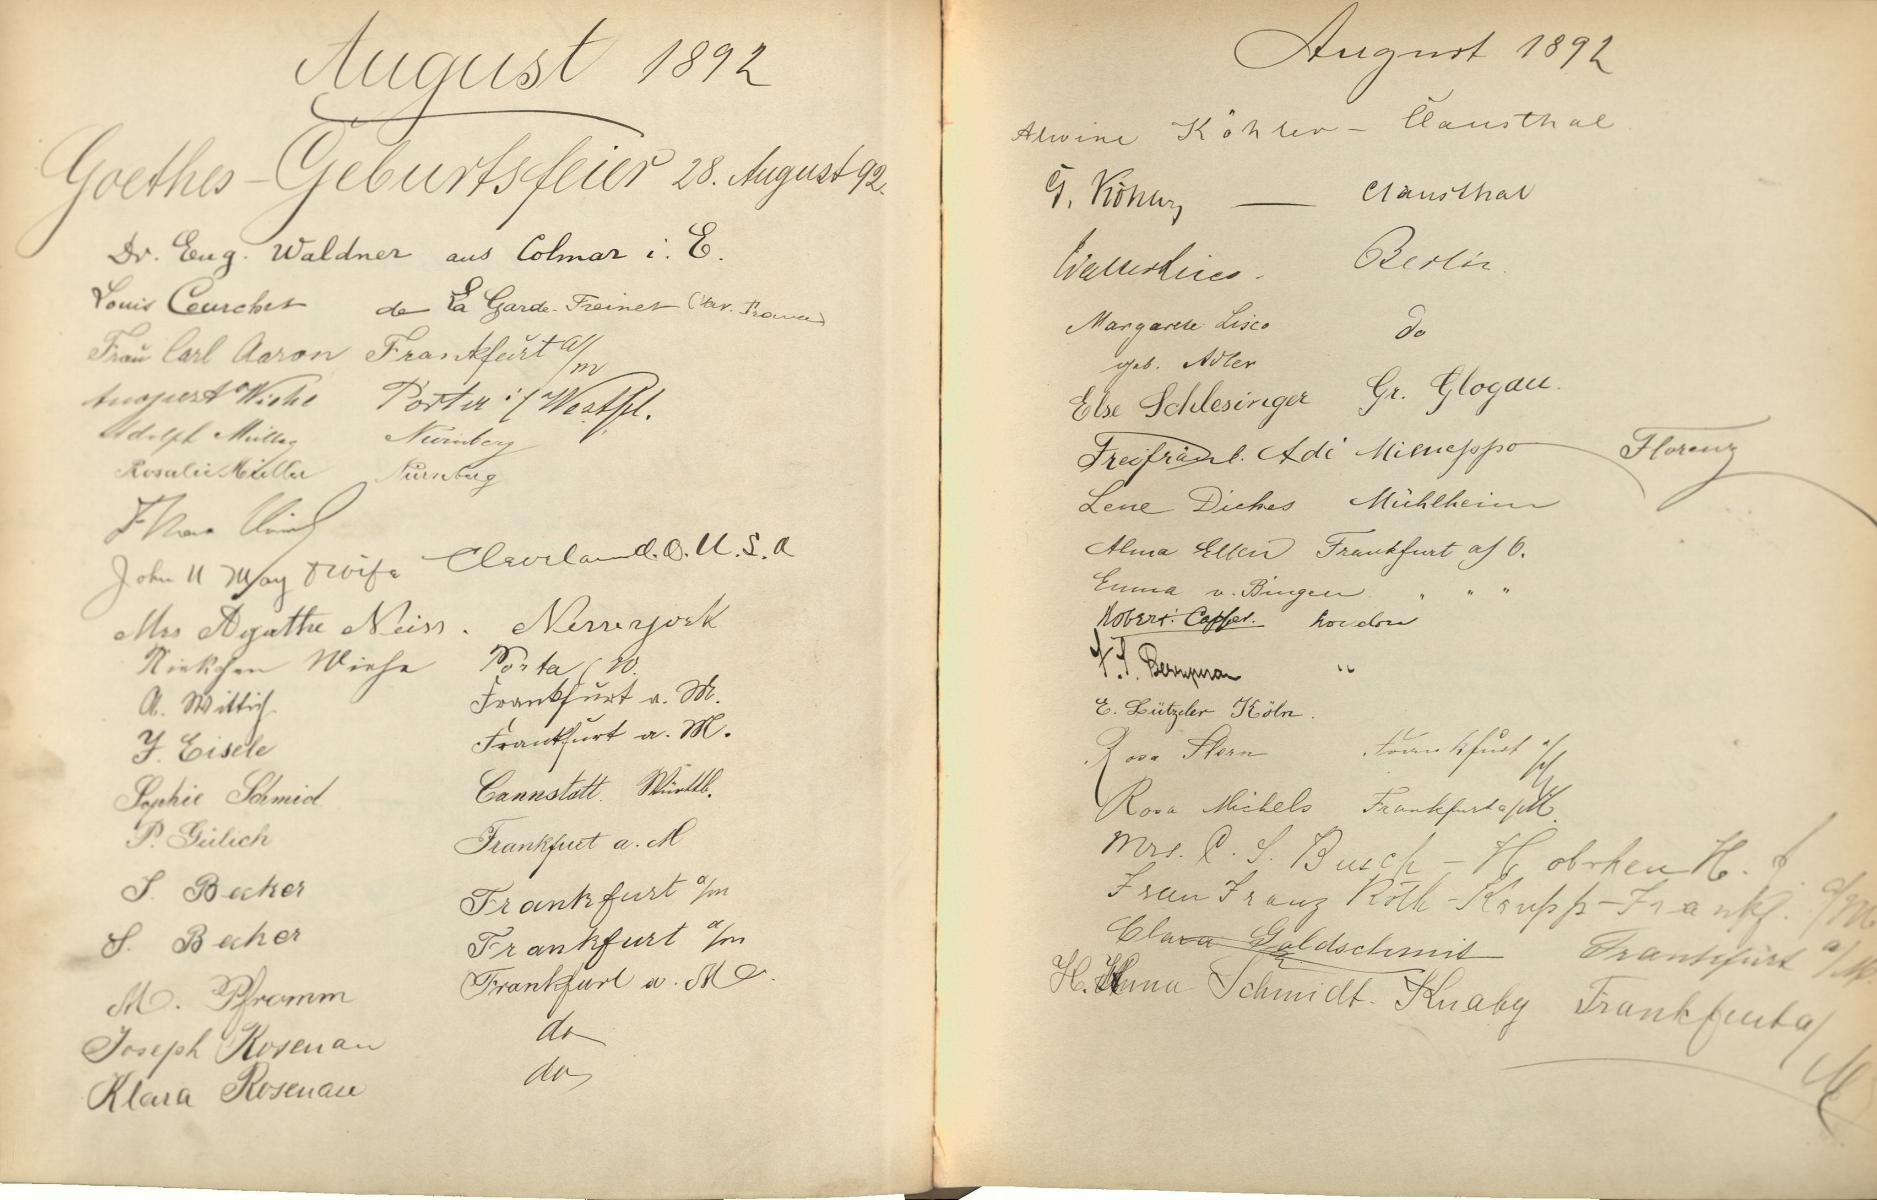 August 1892
Goethes-Geburtsfeier 28. August 92.
Dr. Eug. Waldner aus Colmar i. E.
Louis Courchet de La Garde-Freinet (Var. France)
Frau Carl Aaron Frankfurt a/m
August Wiehe Porta i/ Westfl.
Adolph Müller Nürnberg
Rosalie Müller Nürnberg
John U May & wife Cleveland. O. U. S. A
Mrs Agathe Neiss. Newyork
Wiehe Porta / W.
A. Wittich Frankfurt a. M.
F. Eisele Frankfurt a. M.
Sophie Schmid Cannstatt. Württb.
P. Gülich Frankfurt a. M
S. Becker Frankfurt a/m
S. Becker Frankfurt a/m
M. Pfromm Frankfurt a. M.
Joseph Rosenau do
Klara Rosenau do
August 1892
Alwine Köhler - Clausthal
G. Köhler — Clausthal
Walter Lisco. Berlin.
Margarete Lisco do
geb. Adler
Else Schlesinger Gr. Glogau.
Adi Florenz
Lene Dickes Mühlheim
Alma Frankfurt a/ O.
Emma v. Bingen. " " "
Robert. Capper. London
Berryman "
E. Lützeler Köln.
Rosa Stern Frankfurt a/M
Rosa Michels Frankfurt a/M.
Mrs. C. S. Busch - Hoboken N. J.
Frau Franz Roth-Krupp-Frankf. a/M
Clara Goldschmit Frankfurt a/M.
H. Anna Schmidt-Knaby Frankfurt a/M